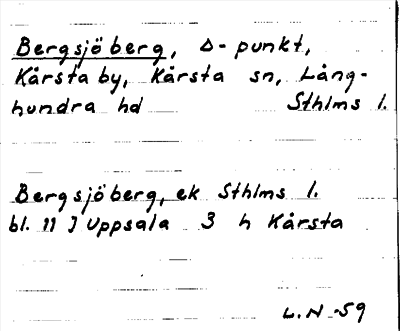 Bergsjöberg, Δ-punkt,
Kårsta by, Kårsta sn, Lång-
hundra hd Sthlms l.
Bergsjöberg, ek Sthlms l.
bl. 11 J Uppsala 3 h Kårsta
L.N -59